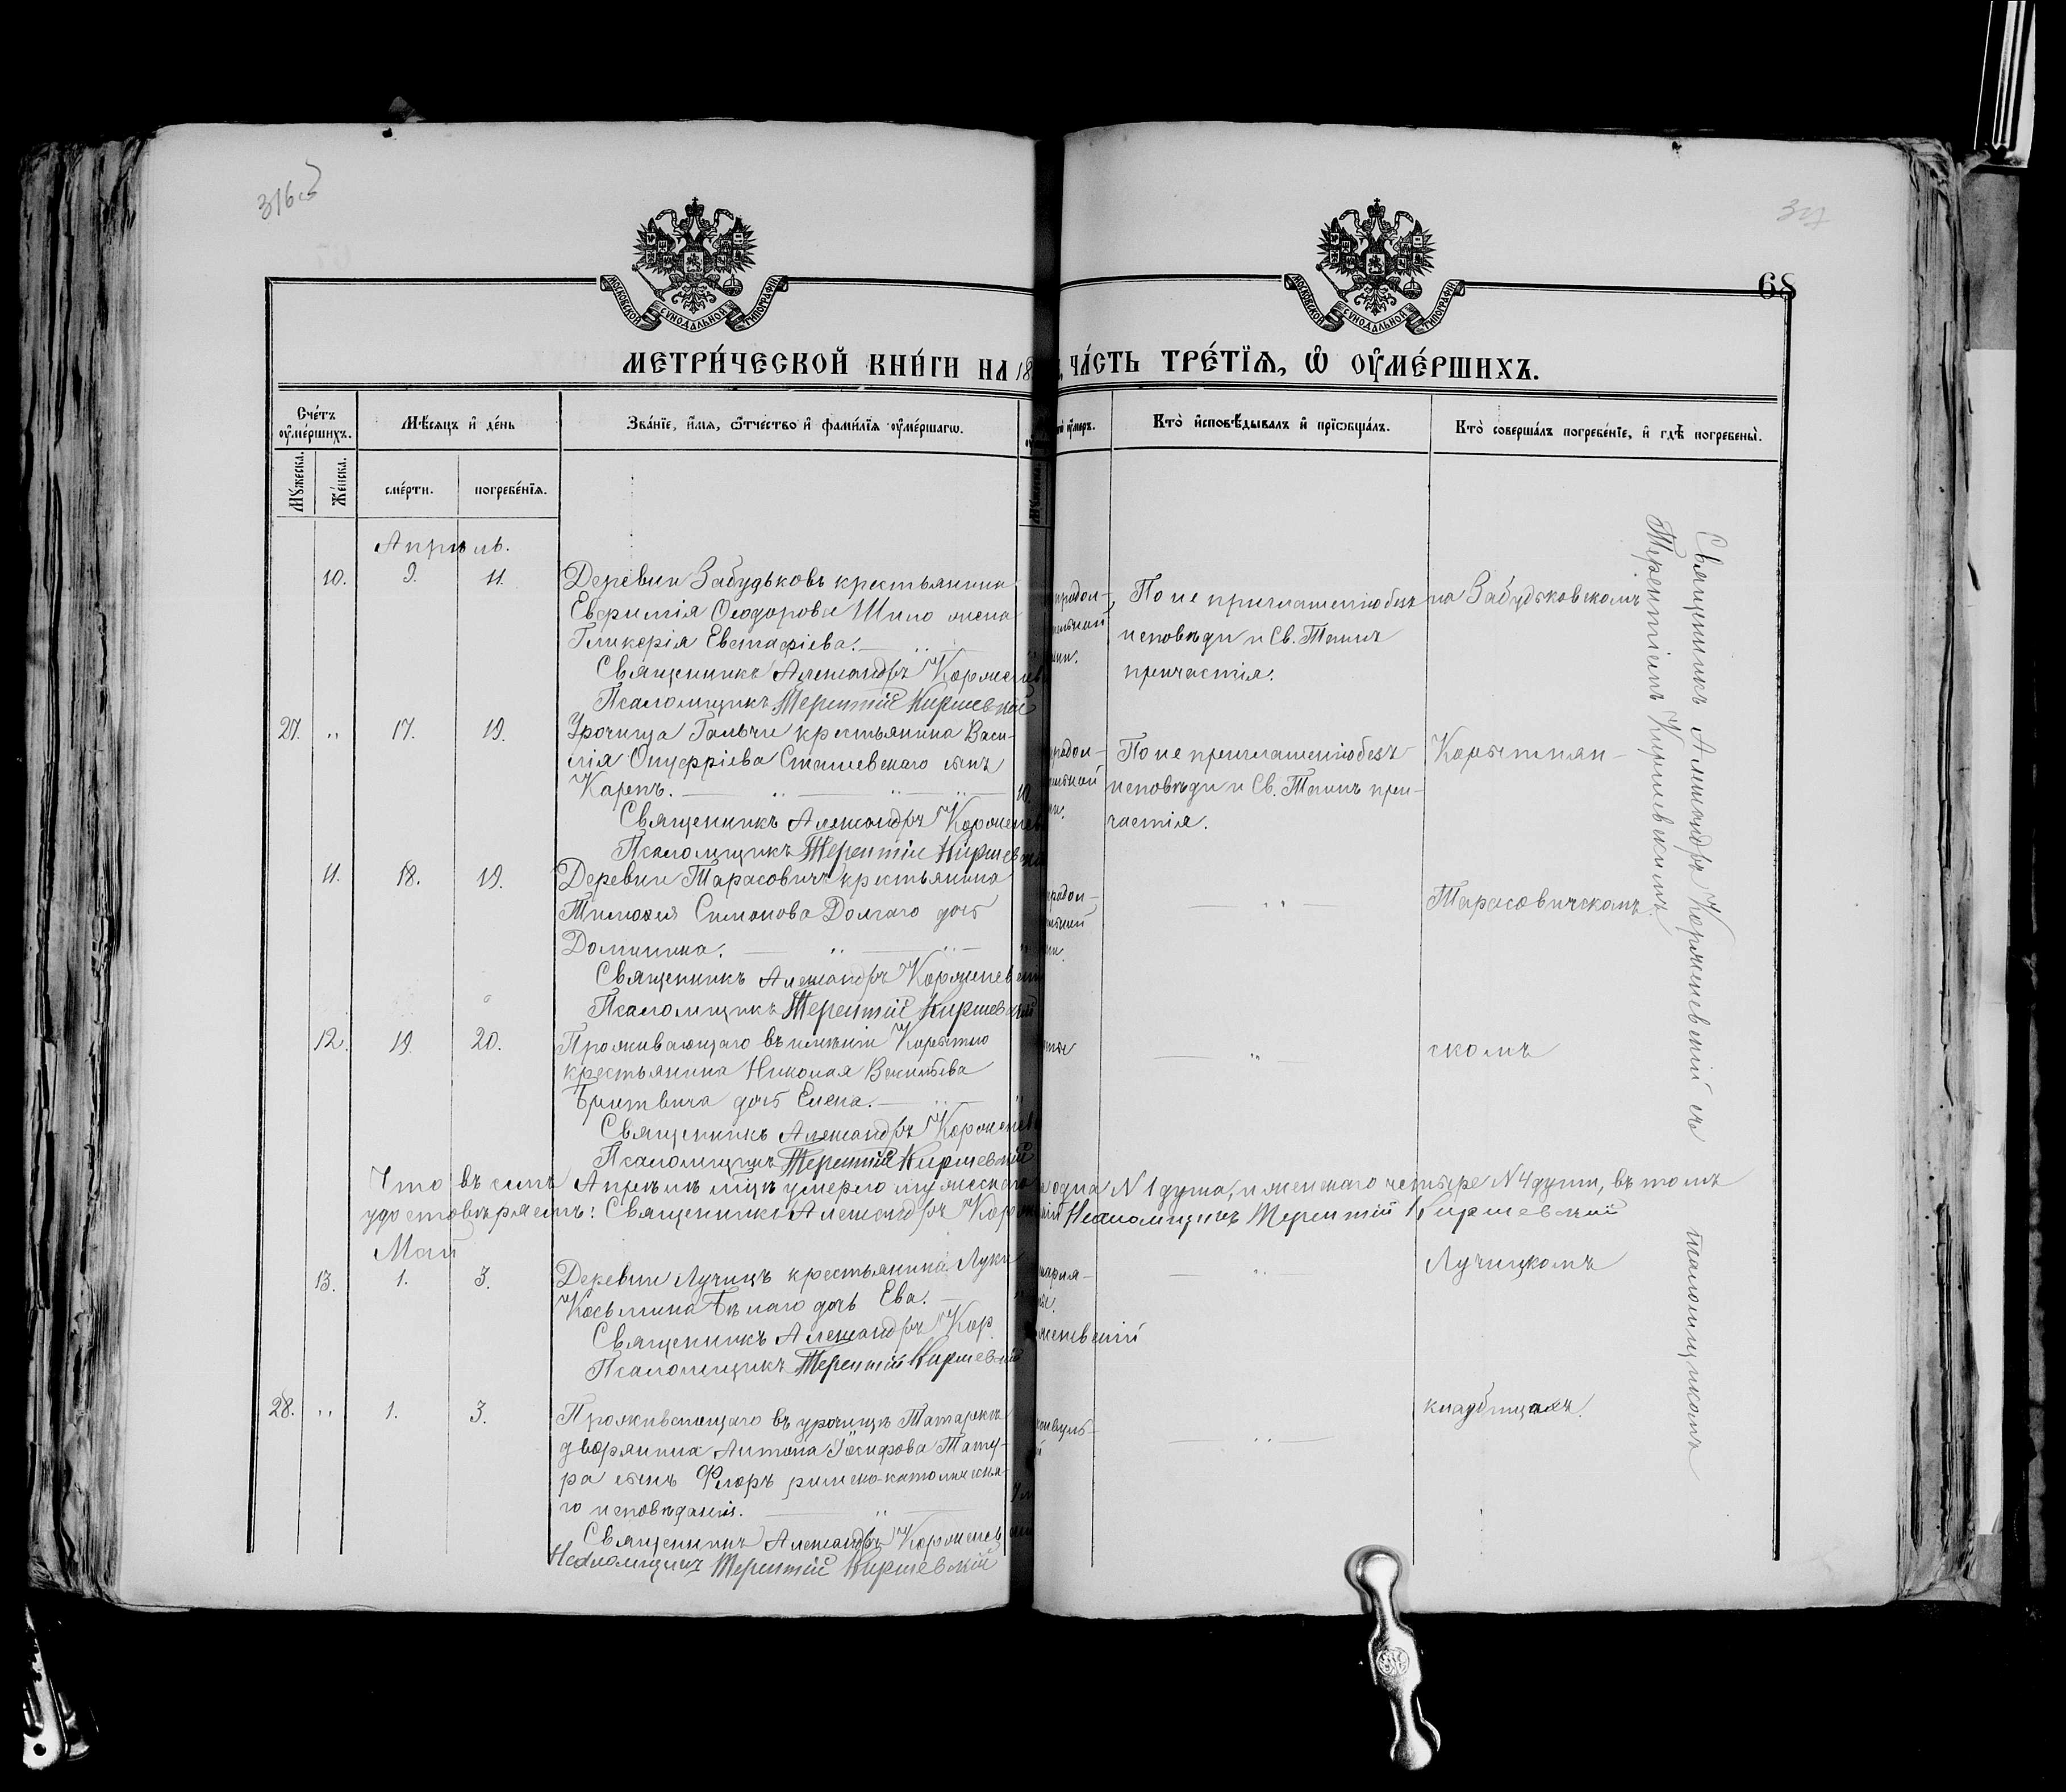 316об
317
МОСКОВСКОЙ СѴНОДАЛЬНОЙ ТИПОГРАФІИ
МОСКОВСКОЙ СѴНОДАЛЬНОЙ ТИПОГРАФІИ
68
МЕТРИ́ЧЕСКОЙ КНИ́ГИ НА 18
ЧА́СТЬ ТРЕ́ТЇѦ, Ѡ ОУ҆МЕ́РШИХЪ.
Сче́тъ оу҆ме́ршихъ.
Мѣ́сѧцъ и҆ де́нь
Зва́нїе, и҆́мѧ, ѻ҆́тчество и҆ фами́лїѧ оу҆ме́ршагѡ.
Кто̀ и҆сповѣ́дывалъ и҆ прїѡбща́лъ.
Кто̀ соверша́лъ погребе́нїе, и҆ гдѣ̀ погребены̀.
Мꙋ́жеска.
Же́нска.
сме́рти.
погребе́нїѧ.
Апрѣль.
10. 9. 11. Деревни Забудьковъ крестьянина
Евфимія Ѳеодорова Шило жена
Гликерія Евстафіева.
Священникъ Александръ Корженев
Псаломщикъ Терентій Киршевскій
По не приглашенію безъ
исповѣди и Св. Таинъ
причастія.
на Забудьковскомъ
27. " 17. 19. Урочища Гальчи крестьянина Васи-
лія Онуфріева Сташевскаго сынъ
Карпъ. 10.
Священникъ Александръ Корженев
Псаломщикъ Терентій Киршевскій
По не приглашенію безъ
исповѣди и Св. Таинъ при-
частія.
Корытнян-
11. 18. 19. Деревни Тарасовичъ крестьянина
Тимоѳея Симонова Долгаго дочь
Домникия.
Священникъ Александръ Корженев
Псаломщикъ Терентій Киршевскій
Тарасовичскомъ
12. 19. 20. Проживающаго въ имѣніи Корытно
крестьянина Николая Васильева
Бритвича дочь Елена.
Священникъ Александръ Корженев
Псаломщикъ Терентій Киршевскій
скомъ
Что въ семъ Апрѣлѣ мцѣ умерло мужескаго одна N 1 душа, и женскаго четыре N 4 души, въ томъ
удостовѣряетъ: Священникъ Александръ Кор Псаломщикъ Терентій Киршевскій
Май
13. 1. 3. Деревни Лучицъ крестьянина Луки
Косьмина Бѣлаго дочь Ева.
Священникъ Александръ Корженевскій
Псаломщикъ Терентій Киршевскій
Лучицкомъ
28. " 1. 3. Проживающаго въ урочищѣ Татарка
дворянина Антона Іосифова Тату-
ра сынъ Флоръ римско-католическа-
го исповѣданія.
Священникъ Александръ Корженев
Псаломщикъ Терентій Киршевскій
кладбищахъ.
Священникъ Александръ Корженевскій съ псаломщикомъ
Терентіемъ Киршевскимъ